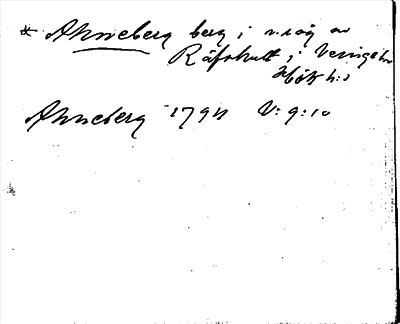 * Ahneberg berg i n.råg av
Räfshult i Veinge sn
Höks h:d
Ahneberg 1794 V: 9:10